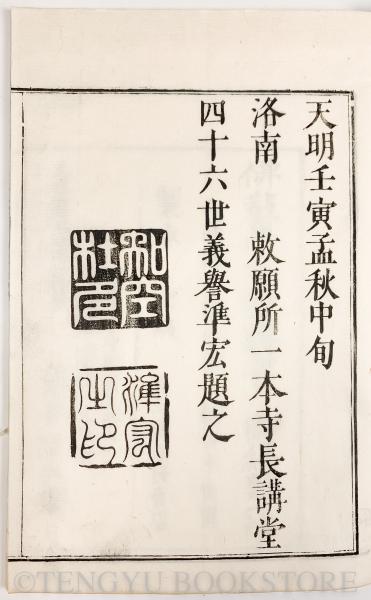 天明壬寅孟秋中旬
洛南　敕願所一本寺長講堂
四十六世義譽準宏題之
準宏之印
©TENGYU BOOKSTORE